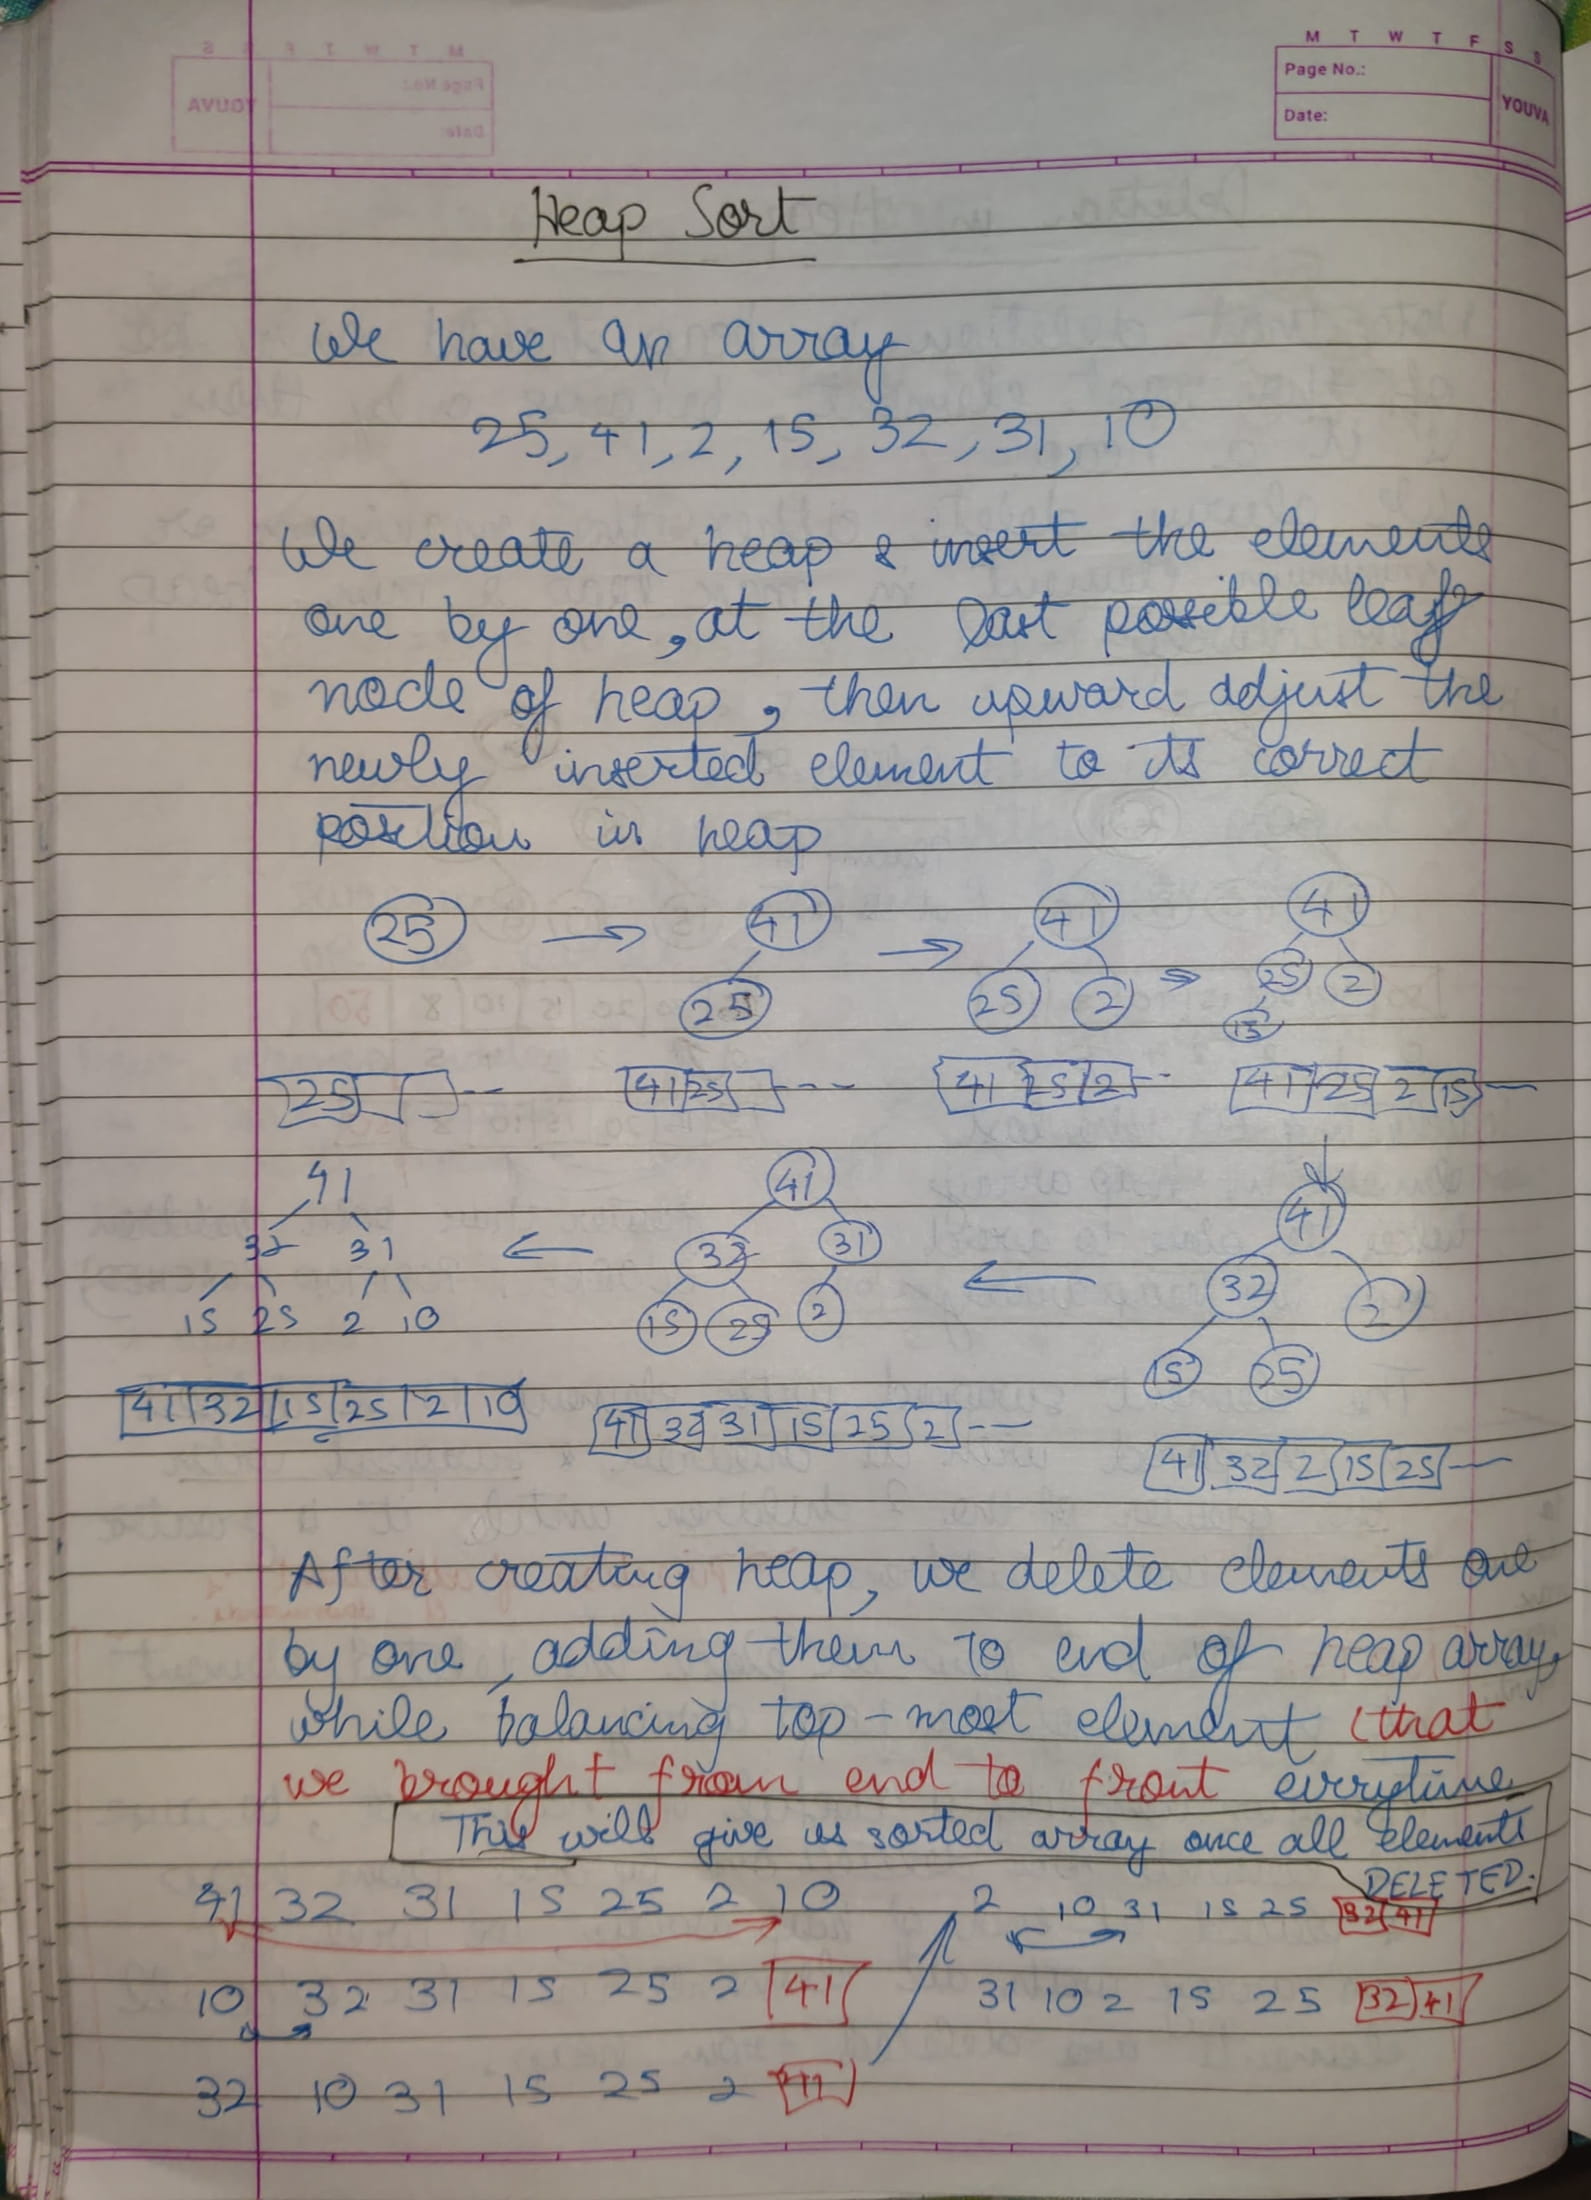 M T W T F S S
Page No.:
Date:
YOUVA
Heap Sort
We have an array
25, 41, 2, 15, 32, 31, 10
We create a heap & insert the elements
one by one, at the last possible leaf
node of heap, then upward adjust the
newly inserted element to its correct
position in heap
25 → 41 → 41 → 41
25 2
25 25 2
15
25
41 25
41 25 2
41 25 2 15
41
32 31
15 25 2 10
←
41
32 31
15 25 2
←
41
32 2
15 25
41 32 15 25 2 10
41 32 31 15 25 2
41 32 2 15 25
After creating heap, we delete elements one
by one, adding them to end of heap array,
while balancing top-most element (that
we brought from end to front everytime
This will give us sorted array once all elements
DELETED.
41 32 31 15 25 2 10
2 10 31 15 25 32 41
10 32 31 15 25 2 41
31 10 2 15 25 32 41
32 10 31 15 25 2 41